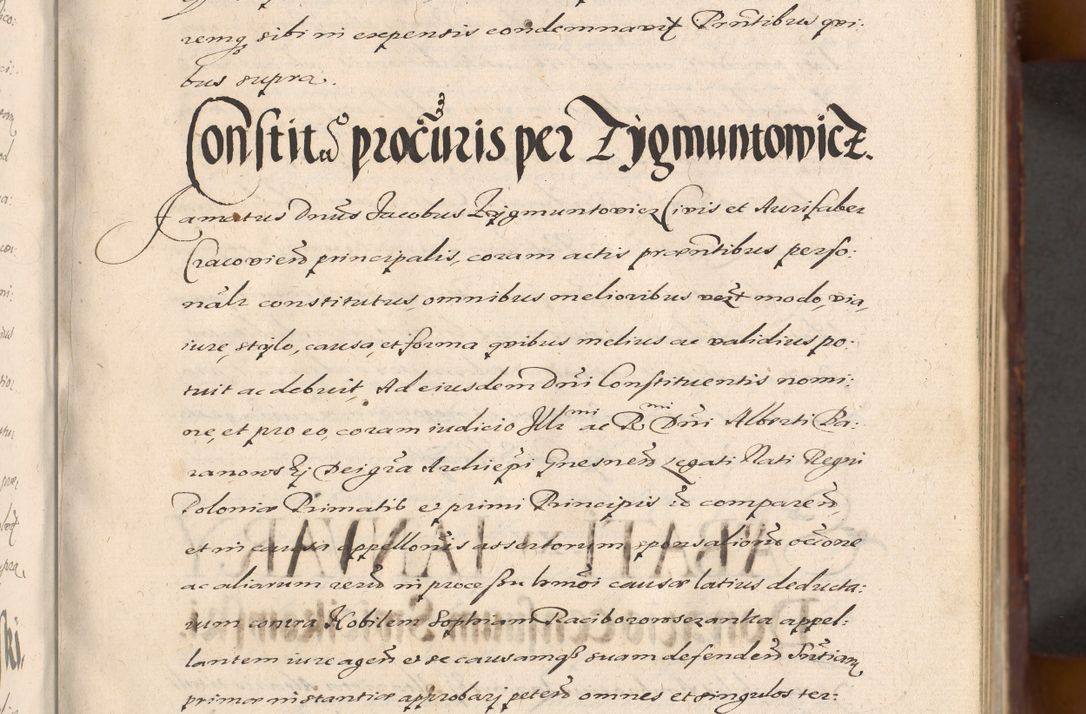 remq sibi in expensis condemnavit Prntibus qui:
bus supra.
Constit.a͠o procuris per Zygmuntowicz.
Famatus Dnus Jacobus Zygmuntowicz Civis et Aurifaber
Cracovien principalis, coram actis praesentibus perso:
nalr constitutus, omnibus melioribus modo, via,
iure, stylo, causa, et forma quibus melius ac validius po:
tuit ac debuit, Ad eiusdem Dni Constituentis nomi:
ne, et pro eo, coram iudicio Illmi ac Rmi Dni Alberti Ba:
ranowskj Dei gra Archiepi Gnesnen legati Nati Regni
Poloniae Primatis et primi Principis comparen,
et in causa appellonis assertorum sponsalioru occone
ac aliarum reru in processu hmoi causae latius deducta:
rum contra Nobilem Sophiam Raciborowsczanka appel:
lantem iure agen et se causamq suam defenden Sntiam
primae instantiae approbarj peten omnes et singulos ter: